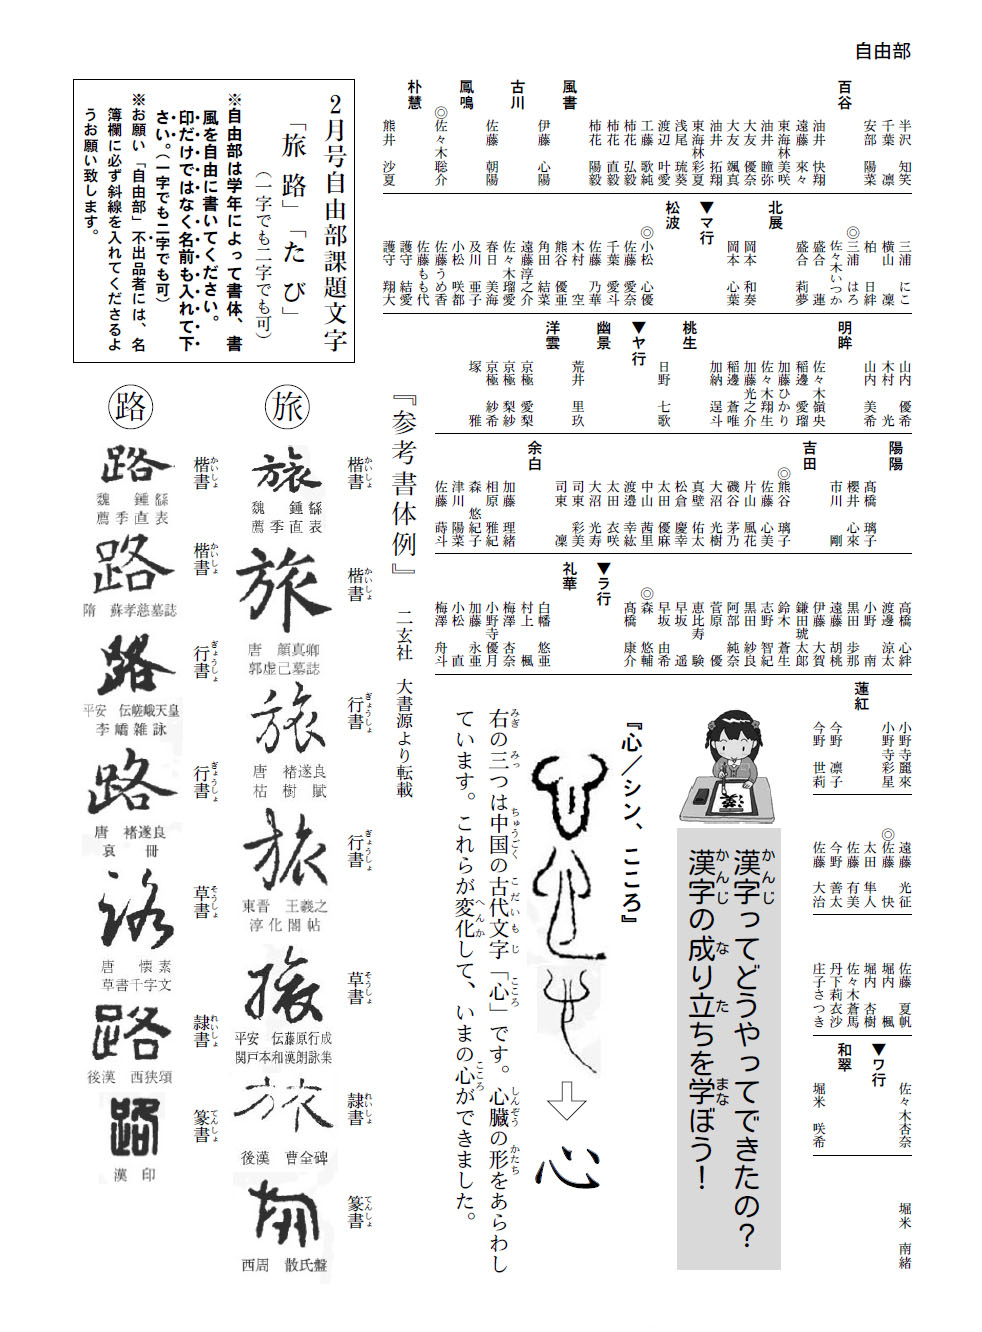 自由部
百谷
半沢 知笑
千葉 凛
安部 陽菜
油井 快翔
遠藤 來々
東海林美咲
油井 瞳弥
大友 優奈
大友 颯真
油井 拓翔
東海林彩夏
浅尾 琉葵
渡辺 叶愛
工藤 歌純
柿花 弘毅
柿花 直毅
柿花 陽毅
風書
伊藤 心陽
古川
佐藤 朝陽
鳳鳴
◎佐々木聡介
朴慧
熊井 沙夏
三浦 にこ
横山 凜
柏 日絆
◎三浦 はろ
佐々木いつか
盛合 蓮
盛合 莉夢
北展
岡本 和奏
岡本 心葉
▼マ行
松波
◎小松 心優
佐藤 愛奈
千葉 愛斗
佐藤 乃華
木村 空
熊谷 優亜
角田 結菜
遠藤淳之介
佐々木瑠愛
春日 美海
及川 亜子
小松 咲都
佐藤うめ香
佐藤もも代
護守 結愛
護守 翔大
山内 優希
木村 光
山内 美希
明眸
佐々木嶺央
稲邊 愛瑠
加藤ひかり
佐々木翔生
加藤光之介
稲邊 蒼唯
加納 逞斗
桃生
日野 七歌
▼ヤ行
幽景
荒井 里玖
洋雲
京極 愛梨
京極 梨紗
京極 紗希
塚 雅
陽陽
髙橋 璃子
櫻井 心來
市川 剛
吉田
◎熊谷 璃子
佐藤 心美
片山 風花
磯谷 茅乃
大沼 光樹
真壁 佑太
松倉 慶幸
太田 優麻
中山 茜里
渡邉 幸紘
太田 衣咲
大沼 光寿
司東 彩美
司東 凜
余白
加藤 理緒
相原 雅紀
森 悠紀子
津川 陽菜
佐藤 蒔斗
高橋 心絆
渡邊 涼太
小野 南
黒田 歩那
遠藤 胡桃
伊藤 大賀
鎌田琥太郎
鈴木 蒼生
志野 智紀
黒田 紗良
阿部 純奈
菅原 優
恵比寿 験
早坂 遥
早坂 由希
◎森 悠輔
髙橋 康介
▼ラ行
礼華
白幡 悠亜
村上 楓
梅澤 杏奈
小野寺優月
加藤 永亜
小松 直
梅澤 舟斗
小野寺麗來
小野寺彩星
蓮紅
今野 凛子
今野 世莉
遠藤 光征
◎佐藤 快
太田 隼人
佐藤 有美
今野 善太
佐藤 大治
佐藤 夏帆
堀内 楓
堀内 杏樹
佐々木蒼馬
丹下莉衣沙
庄子さつき
佐々木杏奈
▼ワ行
和翠
堀米 咲希
堀米 南緒
2月号自由部課題文字
「旅路」「たび」
(一字でも二字でも可)
※自由部は学年によって書体、書
風を自由に書いてください。
印だけではなく名前も入れて下
さい。(一字でも二字でも可)
※お願い「自由部」不出品者には、名
簿欄に必ず斜線を入れてくださるよ
うお願い致します。
『参考書体例』 二玄社 大書源より転載
旅
楷書
かいしょ
旅
魏 鍾繇
薦季直表
楷書
かいしょ
旅
唐 顔真卿
郭虚己墓誌
行書
ぎょうしょ
旅
唐 褚遂良
枯樹賦
行書
ぎょうしょ
旅
東晋 王羲之
淳化閣帖
草書
そうしょ
旅
平安 伝藤原行成
関戸本和漢朗詠集
隷書
れいしょ
旅
後漢 曹全碑
篆書
てんしょ
旅
西周 散氏盤
路
楷書
かいしょ
路
魏 鍾繇
薦季直表
楷書
かいしょ
路
隋 蘇孝慈墓誌
行書
ぎょうしょ
路
平安 伝嵯峨天皇
李嶠雑詠
行書
ぎょうしょ
路
唐 褚遂良
哀冊
草書
そうしょ
路
唐 懐素
草書千字文
隷書
れいしょ
路
後漢 西狭頌
篆書
てんしょ
路
漢 印
漢
漢字ってどうやってできたの?
かんじ
漢字の成り立ちを学ぼう!
かんじ な た まな
『心/シン、こころ』
心
右の三つは中国の古代文字「心」です。心臓の形をあらわし
みぎ みっ ちゅうごく こだいもじ こころ しんぞう かたち
ています。これらが変化して、いまの心ができました。
へんか こころ